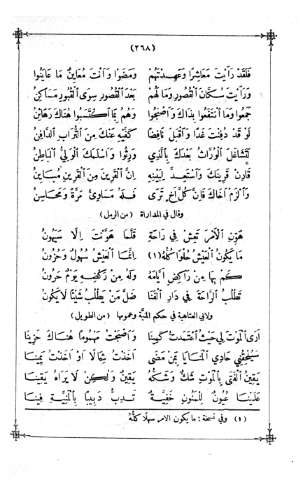 (٢٦٨)
فَلَقَدْ رَأَيْتَ مَعَاشِرًا وَعَهِدتَهُمْ وَمَضَوْا وَأَنْتَ مُعَايِنٌ مَا عَايَنُوا
وَرَأَيْتَ سُكَّانَ القُصُورِ وَمَا لَهُمْ بَعْدَ القُصُورِ سِوَى القُبُورِ مَسَاكِنُ
جَمَعُوا وَمَا انْتَفَعُوا بِذَاكَ وَأَصْبَحُوا وَهُمْ بِمَا اكْتَسَبُوا هُنَاكَ رَهَائِنُ
لَوْ قَدْ دُفِنْتَ غَدًا وَأَقْبَلَ نَافِضًا كَفَّيْهِ عَنْكَ مِنَ التُّرَابِ الدَّافِنُ
لَتَشَاغَلَ الوُرَّاثُ بَعْدَكَ بِالَّذِي وَرِثُوا وَأَسْلَمَكَ الوَلِيُّ البَاطِنُ
قَارِنْ قَرِينَكَ وَاسْتَعِدَّ لِبَيْنِهِ إِنَّ القَرِينَ مِنَ القَرِينِ مُبَايِنُ
وَالْزَمْ أَخَاكَ فَإِنَّ كُلَّ أَخٍ تَرَى فَلَهُ مَسَاوِئُ مَرَّةً وَمَحَاسِنُ
وقال في المداراة (من الرمل)
هَوِّنِ الأَمْرَ تَعِشْ فِي رَاحَةٍ قَلَّمَا هَوَّنْتَ إِلَّا سَيَهُونُ
مَا يَكُونُ العَيْشُ حُلْوًا كُلُّهُ (١) إِنَّمَا العَيْشُ سُهُولٌ وَحُزُونُ
كَمْ بِهَا مِنْ رَاكِضٍ أَيَّامَهُ وَلَهُ مِنْ رَكْضِهِ يَوْمٌ حَرُونُ
تَطْلُبُ الرَّاحَةَ فِي دَارِ الفَنَا ضَلَّ مَنْ يَطْلُبُ شَيْئًا لَا يَكُونُ
ولابي العتاهية في حكم المنيَّة وعمومها (من الطويل)
أَرَى المَوْتَ لِي حَيْثُ اعْتَمَدْتُ كَمِينَا وَأَصْبَحْتُ مَهْمُومًا هُنَاكَ حَزِينَا
سَيُلْحِقُنِي حَادِي المَنَايَا بِمَنْ مَضَى أَخَذْتُ شِمَالًا أَوْ أَخَذْتُ يَمِينَا
يَقِينُ الفَتَى بِالمَوْتِ شَكٌّ وَشَكُّهُ يَقِينٌ وَلٰكِنْ لَا يَرَاهُ يَقِينَا
عَلَيْنَا عُيُونٌ لِلْمَنُونِ خَفِيَّةٌ تَدِبُّ دَبِيبًا بِالمَنِيَّةِ فِينَا
(١) وفي نسخة: ما يكون الامر سهلًا كلُّهُ